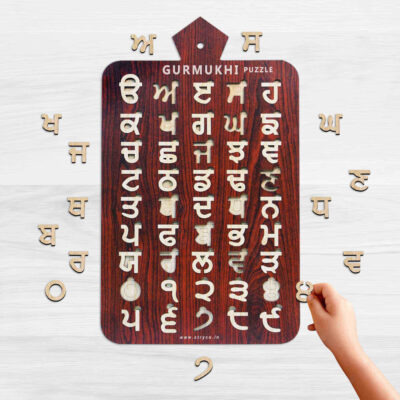 ਅ ਸ
GURMUKHI PUZZLE
ੳ ਅ ੲ ਸ ਹ
ਕ ਖ ਗ ਘ ਙ
ਚ ਛ ਜ ਝ ਞ
ਟ ਠ ਡ ਢ ਣ
ਤ ਥ ਦ ਧ ਨ
ਪ ਫ ਬ ਭ ਮ
ਯ ਰ ਲ ਵ ੜ
੦ ੧ ੨ ੩ ੪
੫ ੬ ੭ ੮ ੯
ਖ
ਜ
ਥ
ਬ
ਰ
੦
ਘ
ਣ
ਧ
ਵ
੪
੭